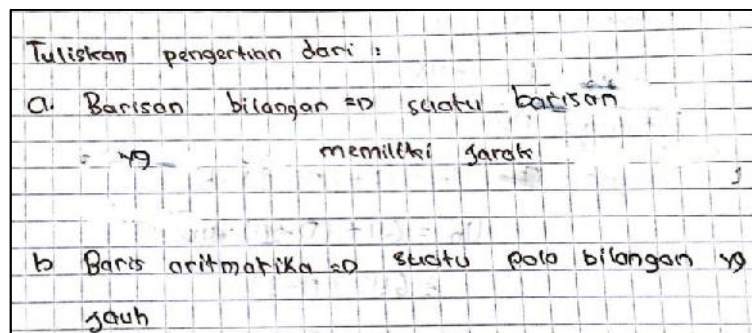 Tuliskan pengertian dari :
a. Barisan bilangan => suatu barisan
yg memiliki jarak
b Baris aritmatika => suatu pola bilangan yg
jauh